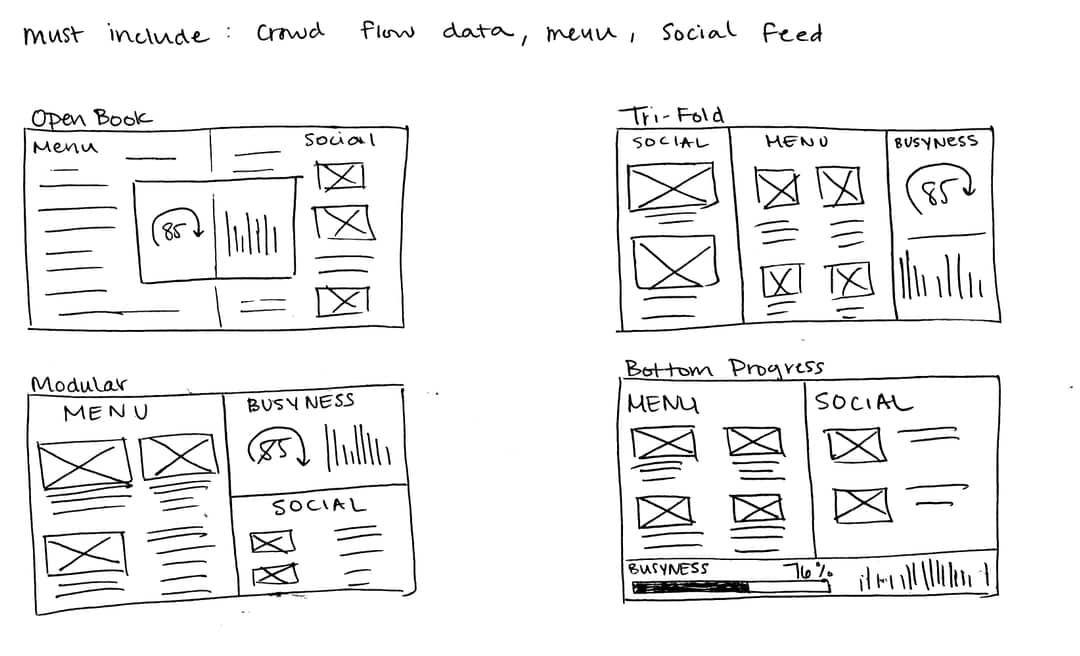 must include : crowd flow data, menu, social feed
Open Book
Menu
Social
85
Tri-Fold
SOCIAL
MENU
BUSYNESS
85
Modular
MENU
BUSYNESS
85
SOCIAL
Bottom Progress
MENU
SOCIAL
BUSYNESS 76%